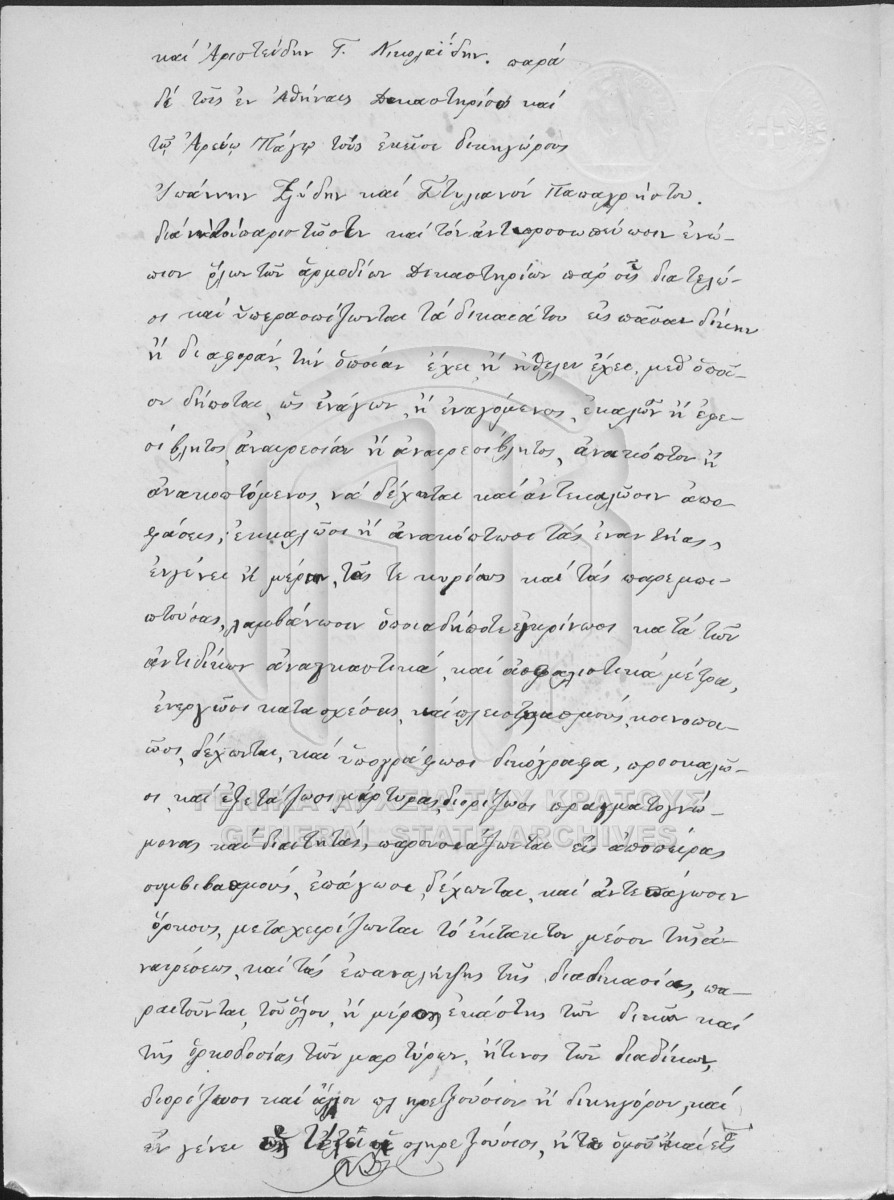 καί Ἀριστείδην Γ. Νικολαΐδην. παρά
δέ τοῖς ἐν Ἀθήναις Δικαστηρίοις καί
τῷ Ἀρείῳ Πάγῳ τούς ἐκεῖσε δικηγόρους
Ἰωάννην καί Στυλιανόν Παπαχρήστου.
διά νά τόν παριστῶσιν καί τόν ἀντιπροσωπεύωσιν ἐνώ-
πιον ὅλων τῶν ἁρμοδίων Δικαστηρίων παρ' οἷς διατελῶ-
σι καί ὑπερασπίζωνται τά δίκαιά του εἰς πᾶσαν δίκην
ἤ διαφοράν, τήν ὁποίαν ἔχει ἤ ἤθελεν ἔχει, μεθ' ὁποῖ-
ον δήποτε, ὡς ἐνάγων, ἤ ἐναγόμενος, ἐκκαλῶν ἤ ἐφε-
σίβλητος, ἀναιρεσίων ἤ ἀναιρεσίβλητος, ἀνακόπτων ἤ
ἀνακοπτόμενος, νά δέχωνται καί ἀντεκκαλῶσιν ἀπο-
φάσεις, ἐκκαλῶσι ἤ ἀνακόπτωσι τάς ἐναντίας,
ἐν γένει ἤ μέρει, τάς τε κυρίως καί τάς παρεμπι-
πτούσας, λαμβάνωσιν ὁποιαδήποτε ἐγκρίνωσι κατά τῶν
ἀντιδίκων ἀναγκαστικά, καί ἀσφαλιστικά μέτρα,
ἐνεργῶσι κατασχέσεις, καί πλειστηριασμούς, κοινοποι-
ῶσι, δέχωνται, καί ὑπογράφωσι δικόγραφα, προσκαλῶ-
σι, καί ἐξετάζωσι μάρτυρας, διορίζωσι πραγματογνώ-
μονας καί διαιτητάς, παρουσιάζωνται εἰς ἀποπείρας
συμβιβασμούς, ἐπάγωσι, δέχωνται, καί ἀντεπάγωσιν
ὅρκους, μεταχειρίζωνται τό ἔκτακτον μέσον τῆς ἀ-
ναιρέσεως, καί τάς ἐπαναλήψεις τῆς διαδικασίας, πα-
ραιτοῦνται, τοῦ ὅλου, ἤ μέρους ἑκάστης τῶν δικῶν καί
τῆς ὁρκοδοσίας τῶν μαρτύρων, ἤ τινος τῶν διαδίκων,
διορίζωσι καί ἄλλον πληρεξούσιον ἤ δικηγόρον, καί
ἐν γένει πληρεξούσιος, εἴτε ὁμοῦ καί εἷς
ΓΕΝΙΚΑ ΑΡΧΕΙΑ ΤΟΥ ΚΡΑΤΟΥΣ
GENERAL STATE ARCHIVES